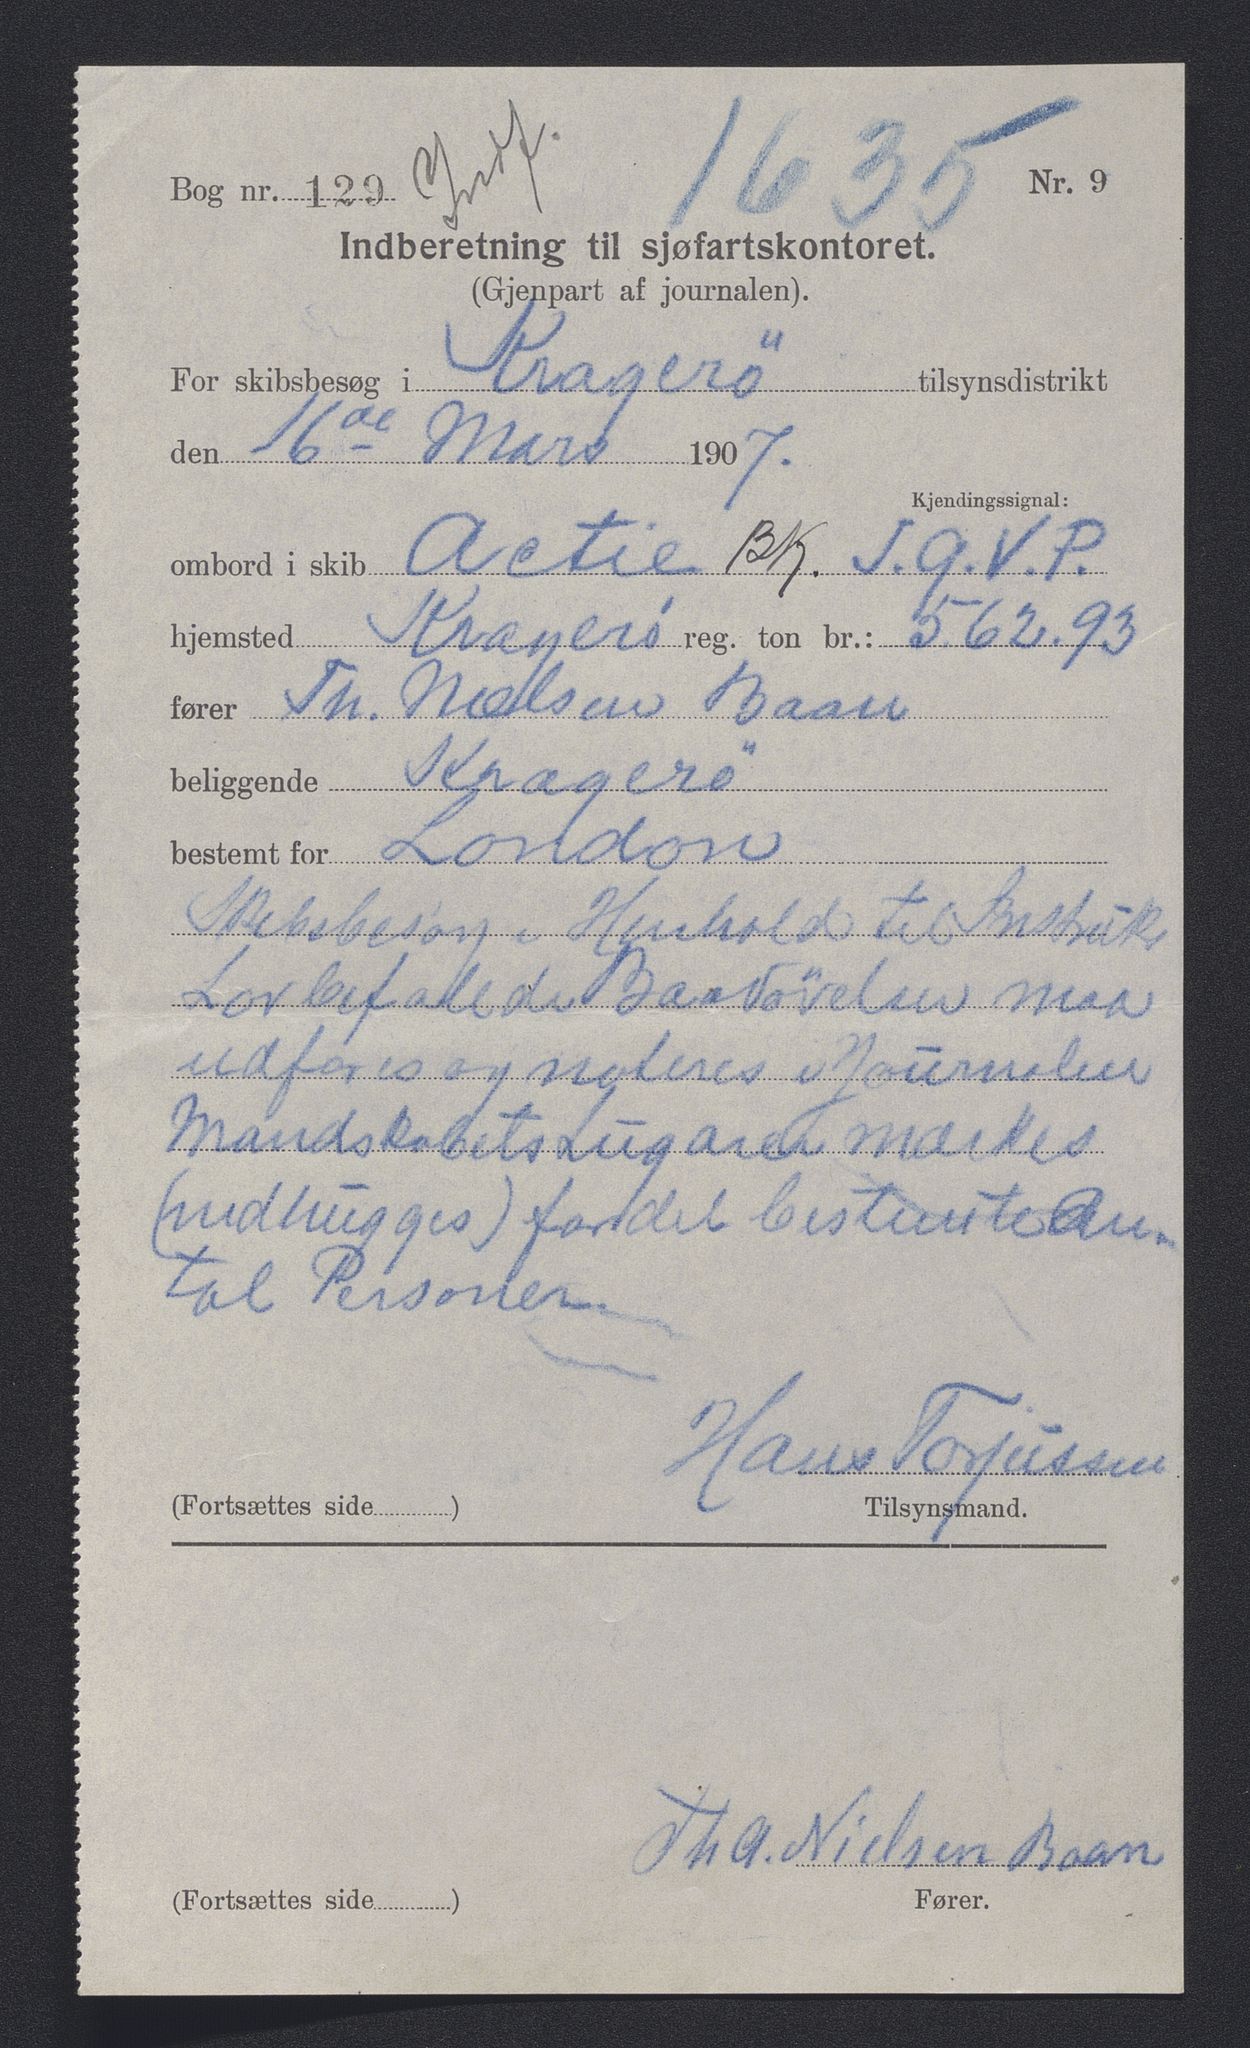 1635
Bog nr. 129 Indf. Nr. 9
Indberetning til sjøfartskontoret.
(Gjenpart af journalen).
For skibsbesøg i Kragerö tilsynsdistrikt
den 16de Mars 1907.
Kjendingssignal:
ombord i skib Actie Bk. J.Q.V.P.
hjemsted Kragerö reg. ton br.: 562.93
fører Th. Nielsen Baan
beliggende Kragerö
bestemt for London
Skibsbesög i Henhold til Instruks
Lovbefalede Baadövelser maa
udföres og noteres i Journalen
Mandskabets Lugarer mærkes
(nedhugges) for det bestemte An-
tal Personer.
Hans Torjussen
(Fortsættes side ) Tilsynsmand.
Th A. Nielsen Baan
(Fortsættes side ) Fører.